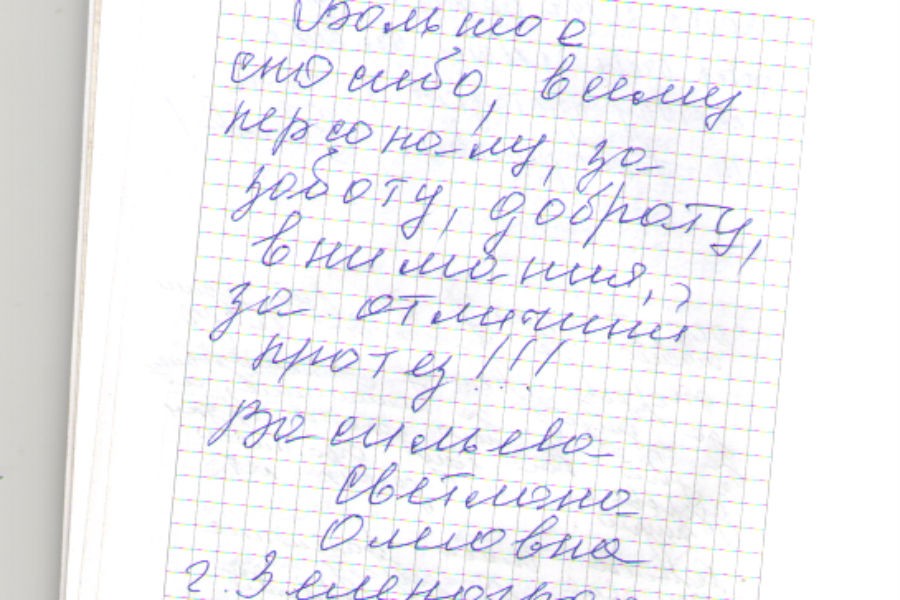 Большое
спасибо, всему
персоналу, за
заботу, доброту,
внимания,
за отличний
протез!!!
Васильева
Светлана
Олеговна
г. Зеленоград